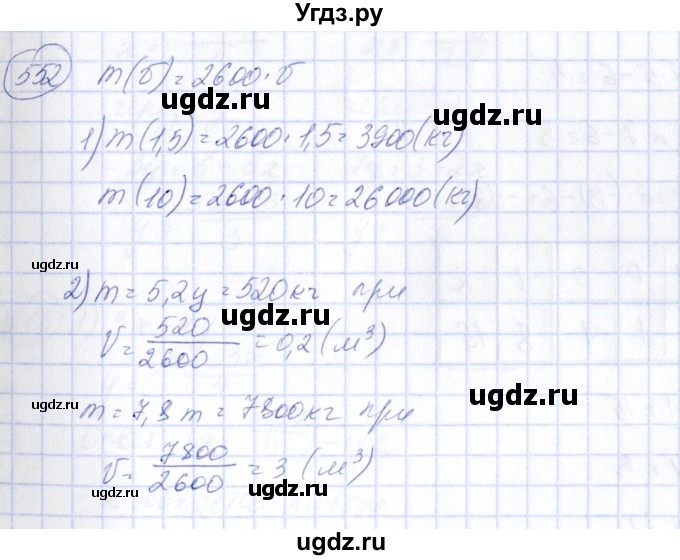 Угдз.ру
552 m(V) = 2600 · V
ugdz.ru ugdz.ru
1) m(1,5) = 2600 · 1,5 = 3900 (кг)
m(10) = 2600 · 10 = 26000 (кг)
ugdz.ru ugdz.ru
2) m = 5,2 ц = 520 кг при
ugdz.ru
V = 520/2600 = 0,2 (м³)
ugdz.ru
m = 7,8 т = 7800 кг при
ugdz.ru
V = 7800/2600 = 3 (м³)
ugdz.ru ugdz.ru